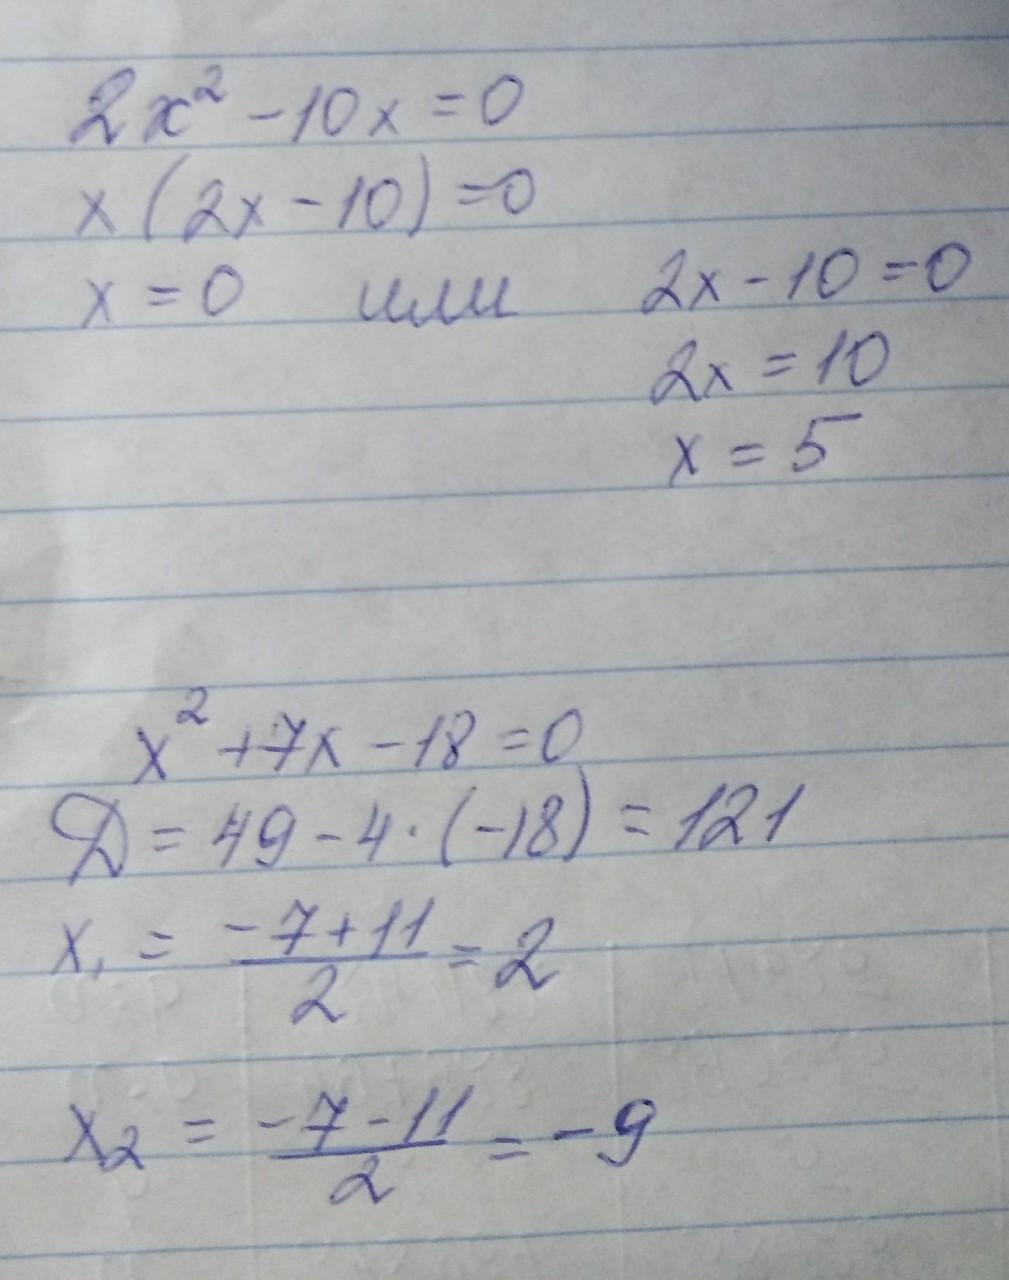 2x² - 10x = 0
x (2x - 10) = 0
x = 0 или 2x - 10 = 0
2x = 10
x = 5
x² + 7x - 18 = 0
D = 49 - 4 · (-18) = 121
x₁ = (-7+11)/2 = 2
x₂ = (-7-11)/2 = -9